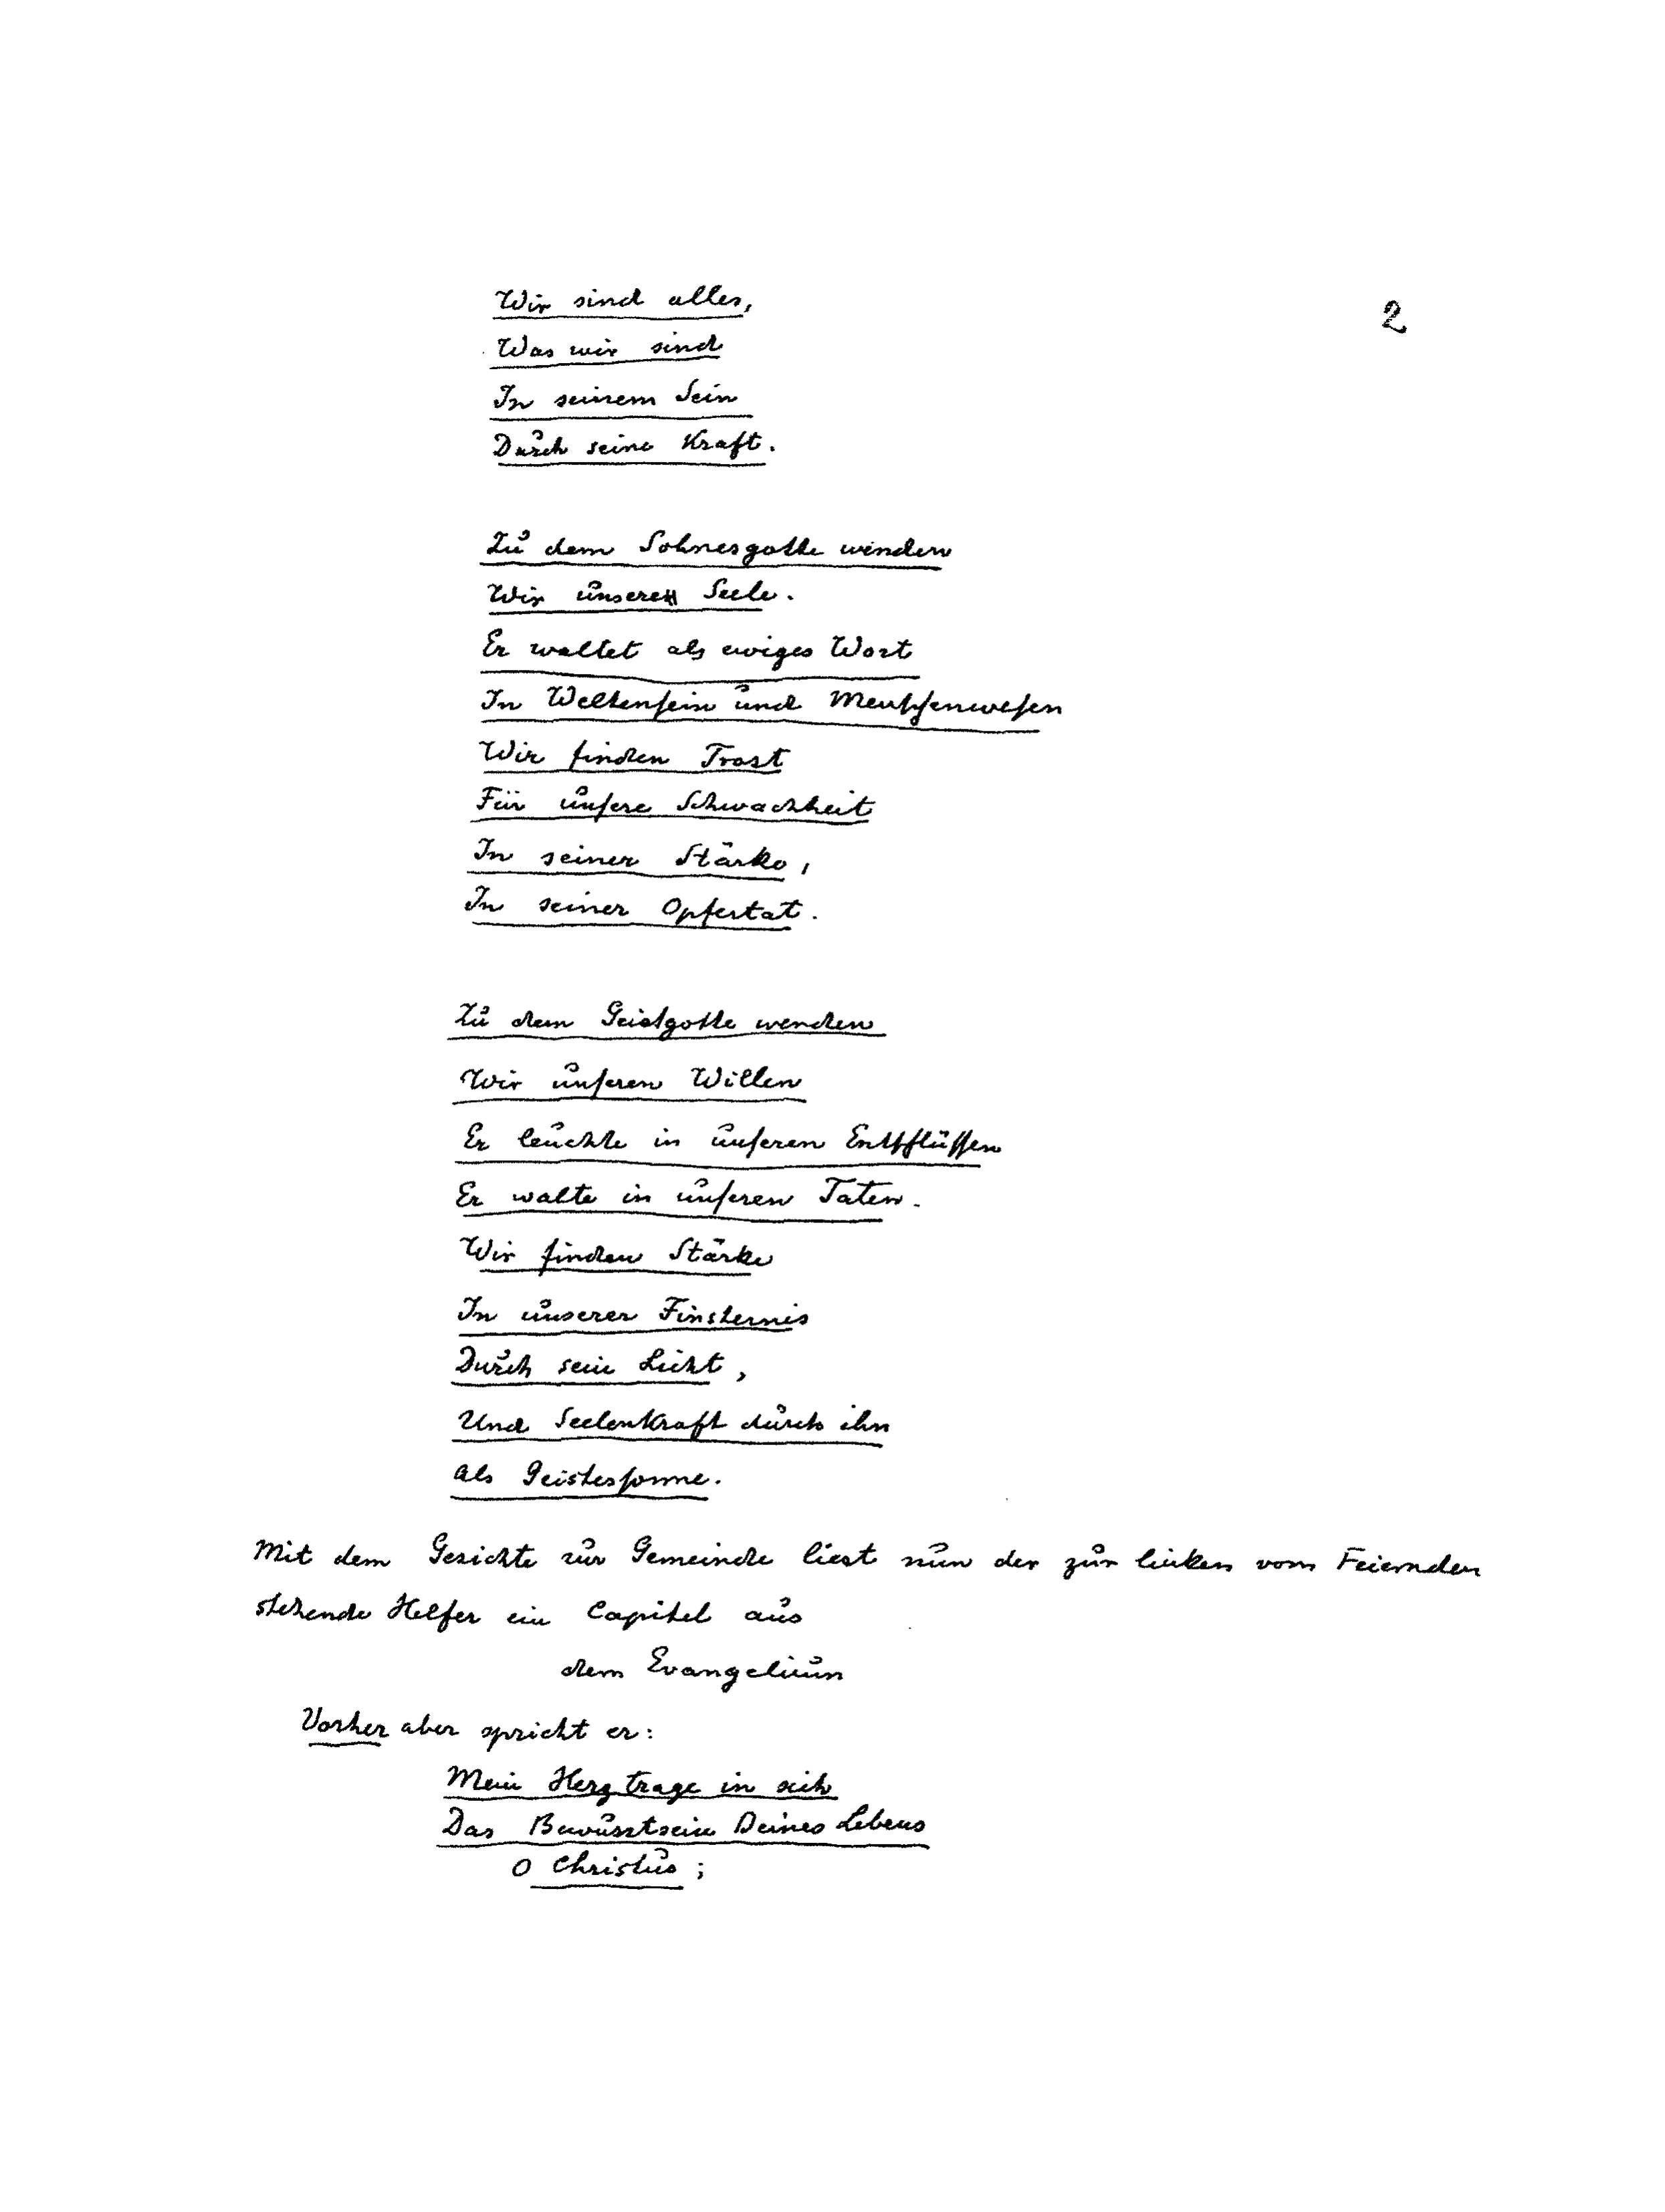 2
Wir sind alles,
Was wir sind
In seinem Sein
Durch seine Kraft.
Zu dem Sohnesgotte wenden
Wir unsere Seele.
Er waltet als ewiges Wort
In Weltensein und Menschenwesen
Wir finden Trost
Für unsere Schwachheit
In seiner Stärke,
In seiner Opfertat.
Zu dem Geistgotte wenden
Wir unseren Willen
Er leuchte in unseren Entschlüssen
Er walte in unseren Taten.
Wir finden Stärke
In unserer Finsternis
Durch sein Licht,
Und Seelenkraft durch ihn
als Geistessonne.
Mit dem Gesichte zur Gemeinde liest nun der zur linken vom Feiernden
stehende Helfer ein Capitel aus
dem Evangelium
Vorher aber spricht er:
Mein Herz trage in sich
Das Bewusstsein Deines Lebens
O Christus;